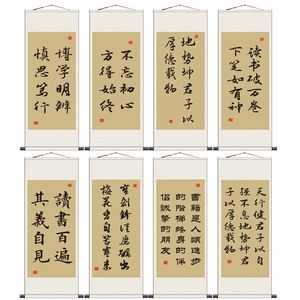 博学明辨
慎思笃行
不忘初心
方得始终
地势坤君子以
厚德载物
读书破万卷
下笔如有神
讀書百遍
其義自見
宝剑锋從磨砺出
梅花香自苦寒来
書籍是人類進步
的階梯終身的伴
侣誠摯的朋友
天行健君子以自
强不息地势坤君
子以厚德载物